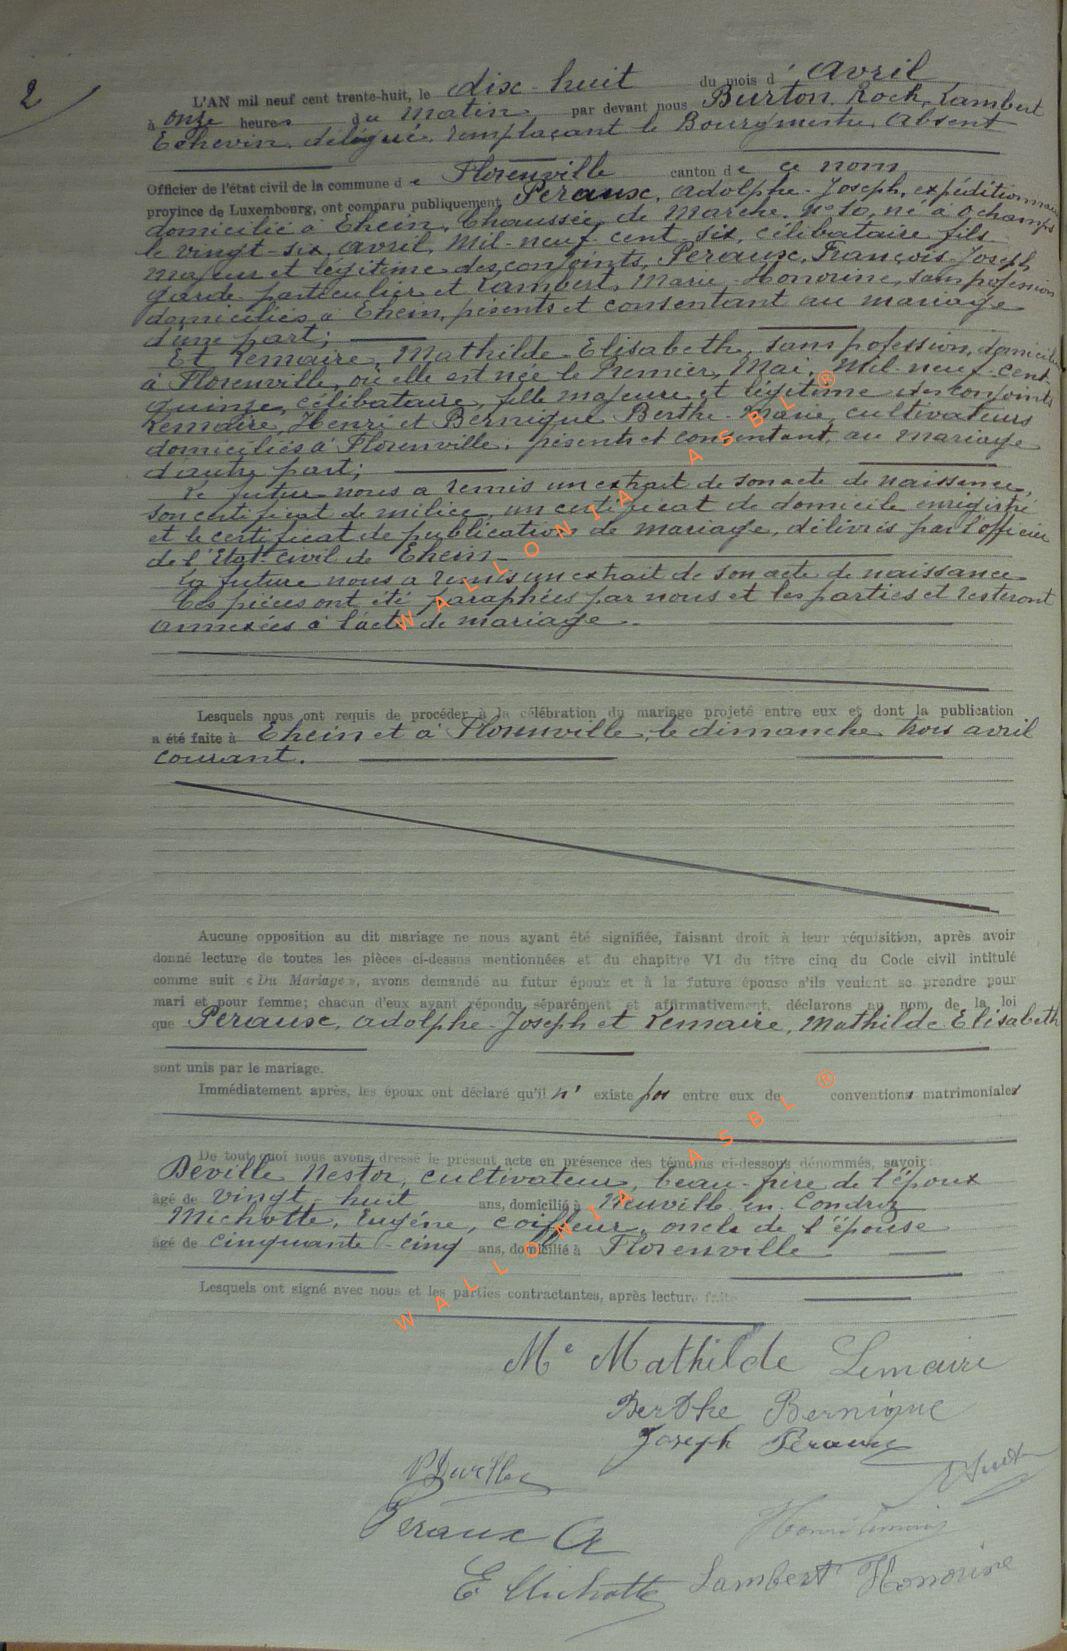 2
L'AN mil neuf cent trente-huit, le dix-huit du mois d'Avril
à onze heures du Matin par devant nous Burton, Roch, Lambert
Echevin, délégué, remplaçant le Bourgmestre, Absent
Officier de l'état civil de la commune de Florenville canton de ce nom
province de Luxembourg, ont comparu publiquement Peraux, Adolphe-Joseph, expéditionnaire
domicilié à Ehein, Chaussée de Marche, n° 10, né à Ochamps
le vingt-six, avril, Mil-neuf-cent-six, célibataire fils
majeur et légitime des conjoints, Peraux, François-Joseph
garde-particulier et Lambert, Marie-Honorine, sans profession
domiciliés à Ehein, présents et consentant au mariage
d'une part;
Et Lemaire, Mathilde Elisabeth, sans profession, domiciliée
à Florenville, où elle est née le Premier, Mai, Mil-neuf-cent-
quinze, célibataire, fille majeure et légitime des conjoints
Lemaire, Henri et Bernique Berthe-Marie, cultivateurs
domiciliés à Florenville, présents et consentant, au mariage
d'autre part;
Le futur nous a remis un extrait de son acte de naissance,
son certificat de milice, un certificat de domicile enrégistré
et le certificat de publication de mariage, délivrés par l'officier
de l'Etat-civil de Ehein
La future nous a remis un extrait de son acte de naissance
Ces pièces ont été paraphées par nous et les parties et resteront
annexées à l'acte de mariage.
Lesquels nous ont requis de procéder à la célébration du mariage projeté entre eux et dont la publication
a été faite à Ehein et à Florenville, le dimanche trois avril
courant.
Aucune opposition au dit mariage ne nous ayant été signifiée, faisant droit à leur réquisition, après avoir
donné lecture de toutes les pièces ci-dessus mentionnées et du chapitre VI du titre cinq du Code civil intitulé
comme suit « Du Mariage », avons demandé au futur époux et à la future épouse s'ils veulent se prendre pour
mari et pour femme; chacun d'eux ayant répondu séparément et affirmativement, déclarons au nom de la loi
que Peraux, Adolphe-Joseph et Lemaire, Mathilde-Elisabeth
sont unis par le mariage.
Immédiatement après, les époux ont déclaré qu'il n'existe pas entre eux de conventions matrimoniales
De tout quoi nous avons dressé le présent acte en présence des témoins ci-dessous dénommés, savoir:
Deville Nestor, cultivateur, beau-frère de l'époux
âgé de vingt-huit ans, domicilié à Neuville-en-Condroz
Michotte, Eugène, coiffeur, oncle de l'épouse
âgé de cinquante-cinq ans, domicilié à Florenville
Lesquels ont signé avec nous et les parties contractantes, après lecture faite
Me Mathilde Lemaire
Berthe Bernique
Joseph Peraux
Peraux A
Henri Lemaire
E Michotte Lambert Honorine
WALLONIA ASBL ®
WALLONIA ASBL ®